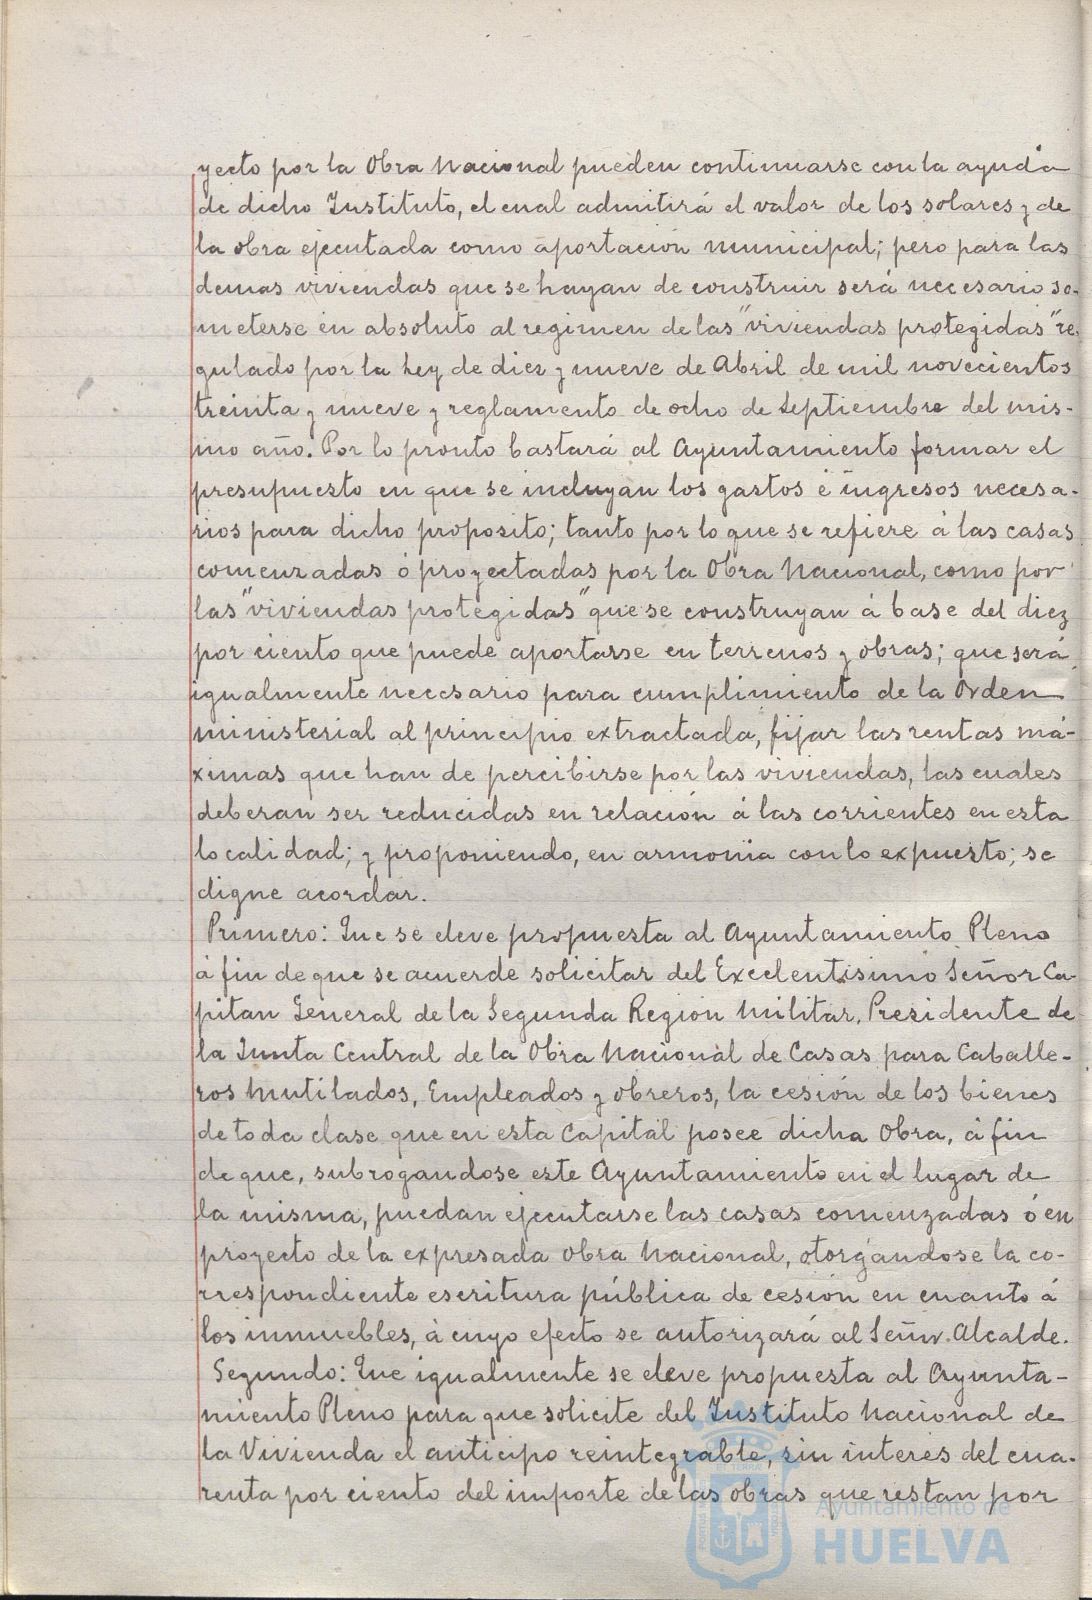 yecto por la Obra Nacional pueden continuarse con la ayuda
de dicho Instituto, el cual admitirá el valor de los solares y de
la obra ejecutada como aportación municipal; pero para las
demas viviendas que se hayan de construir será necesario so-
meterse en absoluto al regimen de las "viviendas protegidas" re-
gulado por la Ley de diez y nueve de Abril de mil novecientos
treinta y nueve y reglamento de ocho de Septiembre del mis-
mo año. Por lo pronto bastará al Ayuntamiento formar el
presupuesto en que se incluyan los gastos é ingresos necesa-
rios para dicho proposito; tanto por lo que se refiere á las casas
comenzadas ó proyectadas por la Obra Nacional, como por
las "viviendas protegidas" que se construyan á base del diez
por ciento que puede aportarse en terrenos y obras; que será
igualmente necesario para cumplimiento de la Orden
ministerial al principio extractada, fijar las rentas má-
ximas que han de percibirse por las viviendas, las cuales
deberan ser reducidas en relación á las corrientes en esta
localidad; y proponiendo, en armonia con lo expuesto; se
digne acordar.
Primero: Que se eleve propuesta al Ayuntamiento Pleno
á fin de que se acuerde solicitar del Excelentisimo Señor Ca-
pitan General de la Segunda Region Militar, Presidente de
la Junta Central de la Obra Nacional de Casas para Caballe-
ros Mutilados, Empleados y obreros, la cesión de los bienes
de toda clase que en esta Capital posee dicha Obra, á fin
de que, subrogandose este Ayuntamiento en el lugar de
la misma, puedan ejecutarse las casas comenzadas ó en
proyecto de la expresada Obra Nacional, otorgándose la co-
rrespondiente escritura pública de cesión en cuanto á
los inmuebles, á cuyo efecto se autorizará al Señor Alcalde.
Segundo: Que igualmente se eleve propuesta al Ayunta-
miento Pleno para que solicite del Instituto Nacional de
la Vivienda el anticipo reintegrable, sin interes del cua-
renta por ciento del importe de las obras que restan por
Ayuntamiento de
HUELVA